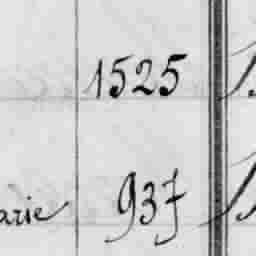 1525
arie 937